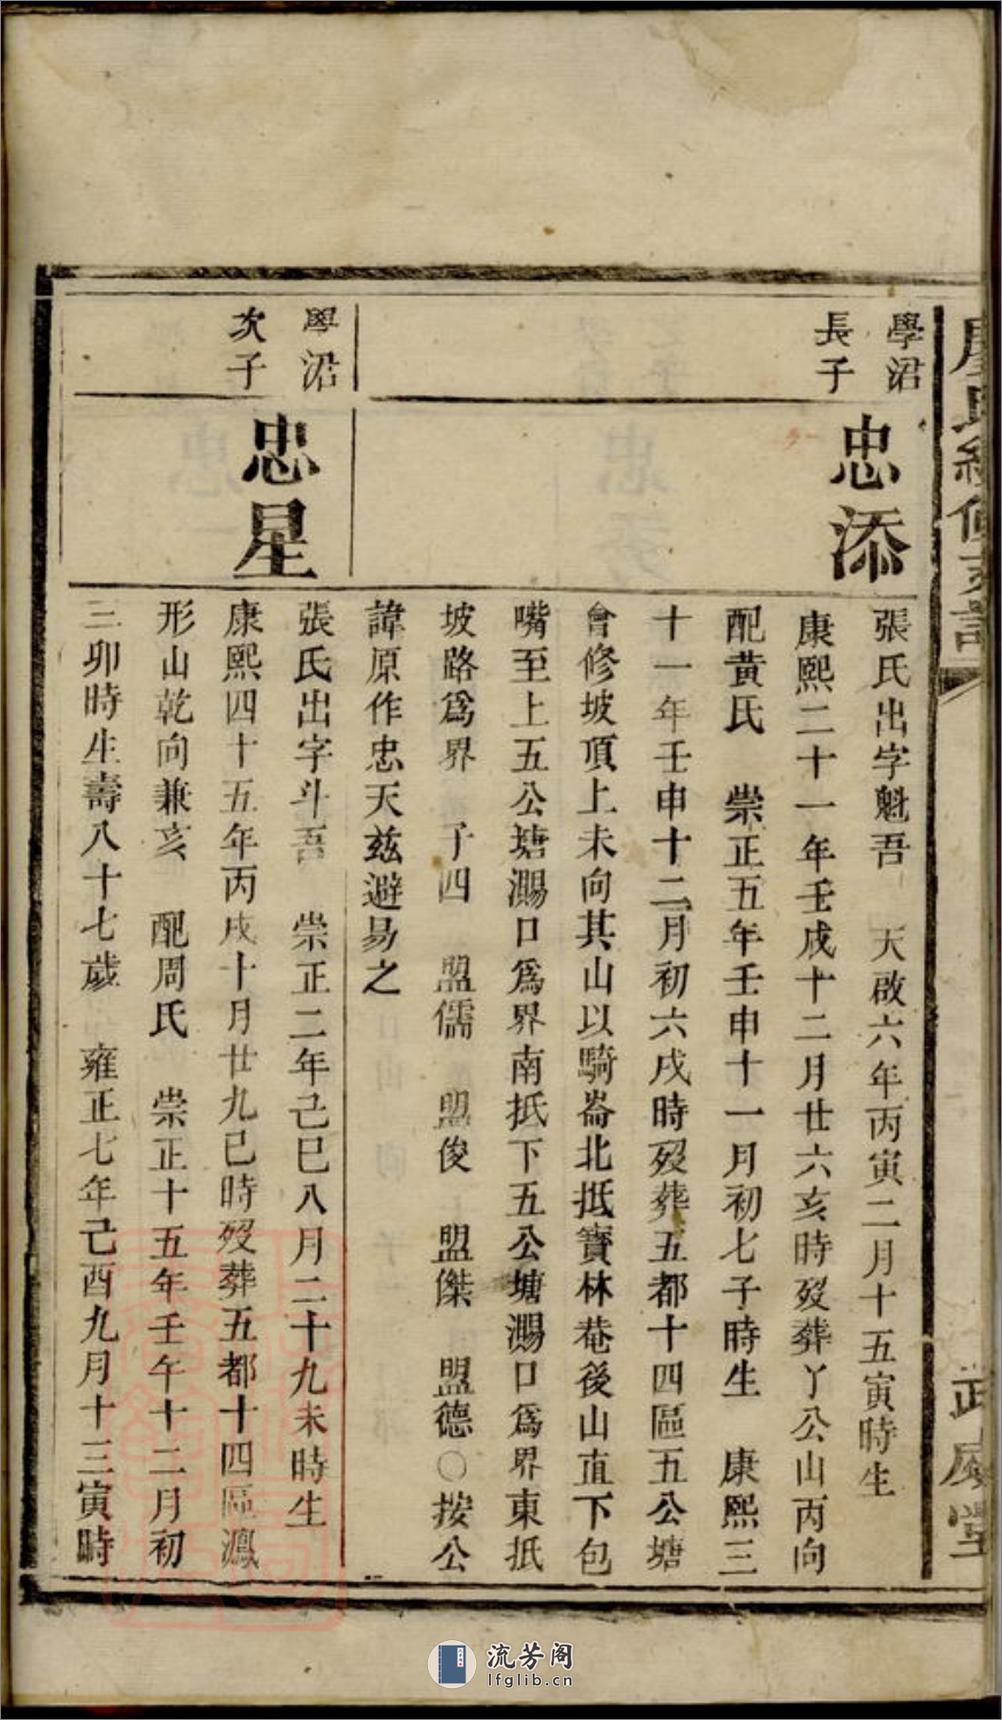 學沼
長子
忠添
張氏出字魁吾　天啟六年丙寅二月十五寅時生
康熙二十一年壬戌十二月廿六亥時歿葬丫公山丙向
配黃氏　崇正五年壬申十一月初七子時生　康熙三
十一年壬申十二月初六戌時歿葬五都十四區五公塘
會修坡頂上未向其山以騎崙北抵寶林菴後山直下包
嘴至上五公塘㵝口爲界南抵下五公塘㵝口爲界東抵
坡路爲界　子四　盟儒　盟俊　盟傑　盟德○按公
諱原作忠天玆避易之
學沼
次子
忠星
張氏出字斗吾　崇正二年己巳八月二十九未時生
康熙四十五年丙戌十月廿九巳時歿葬五都十四區鳳
形山乾向兼亥　配周氏　崇正十五年壬午十二月初
三卯時生壽八十七歲　雍正七年己酉九月十三寅時
流芳阁
lfglib.cn